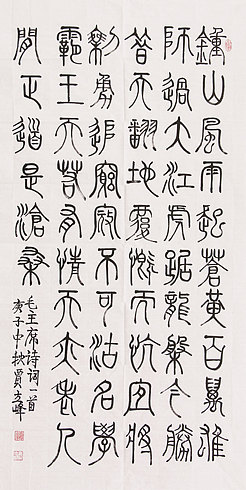 鍾山風雨起蒼黃百萬雄
師過大江虎踞龍盤今勝
昔天翻地覆慨而慷宜將
剩勇追窮寇不可沽名學
霸王天若有情天亦老人
間正道是滄桑
毛主席诗词一首
庚子中秋賈峰